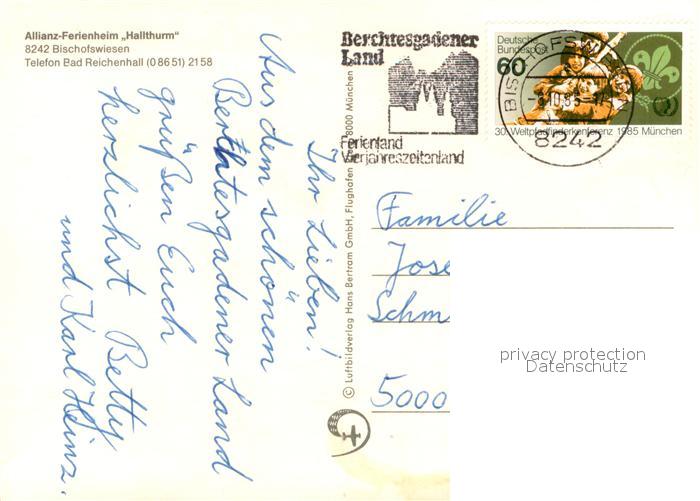 Allianz-Ferienheim „Hallthurm"
8242 Bischofswiesen
Telefon Bad Reichenhall (0 86 51) 21 58
Ihr Lieben!
Aus dem schönen
Berchtesgadener Land
grüßen Euch
herzlichst Betty
und Karl Heinz.
© Luftbildverlag Hans Bertram GmbH, Flughafen 8000 München
Berchtesgadener
Land
Ferienland
Vierjahreszeitenland
Deutsche
Bundespost
60
30. Weltpfadfinderkonferenz 1985 München
8242
Familie
Jose
Schm
5000
privacy protection
Datenschutz